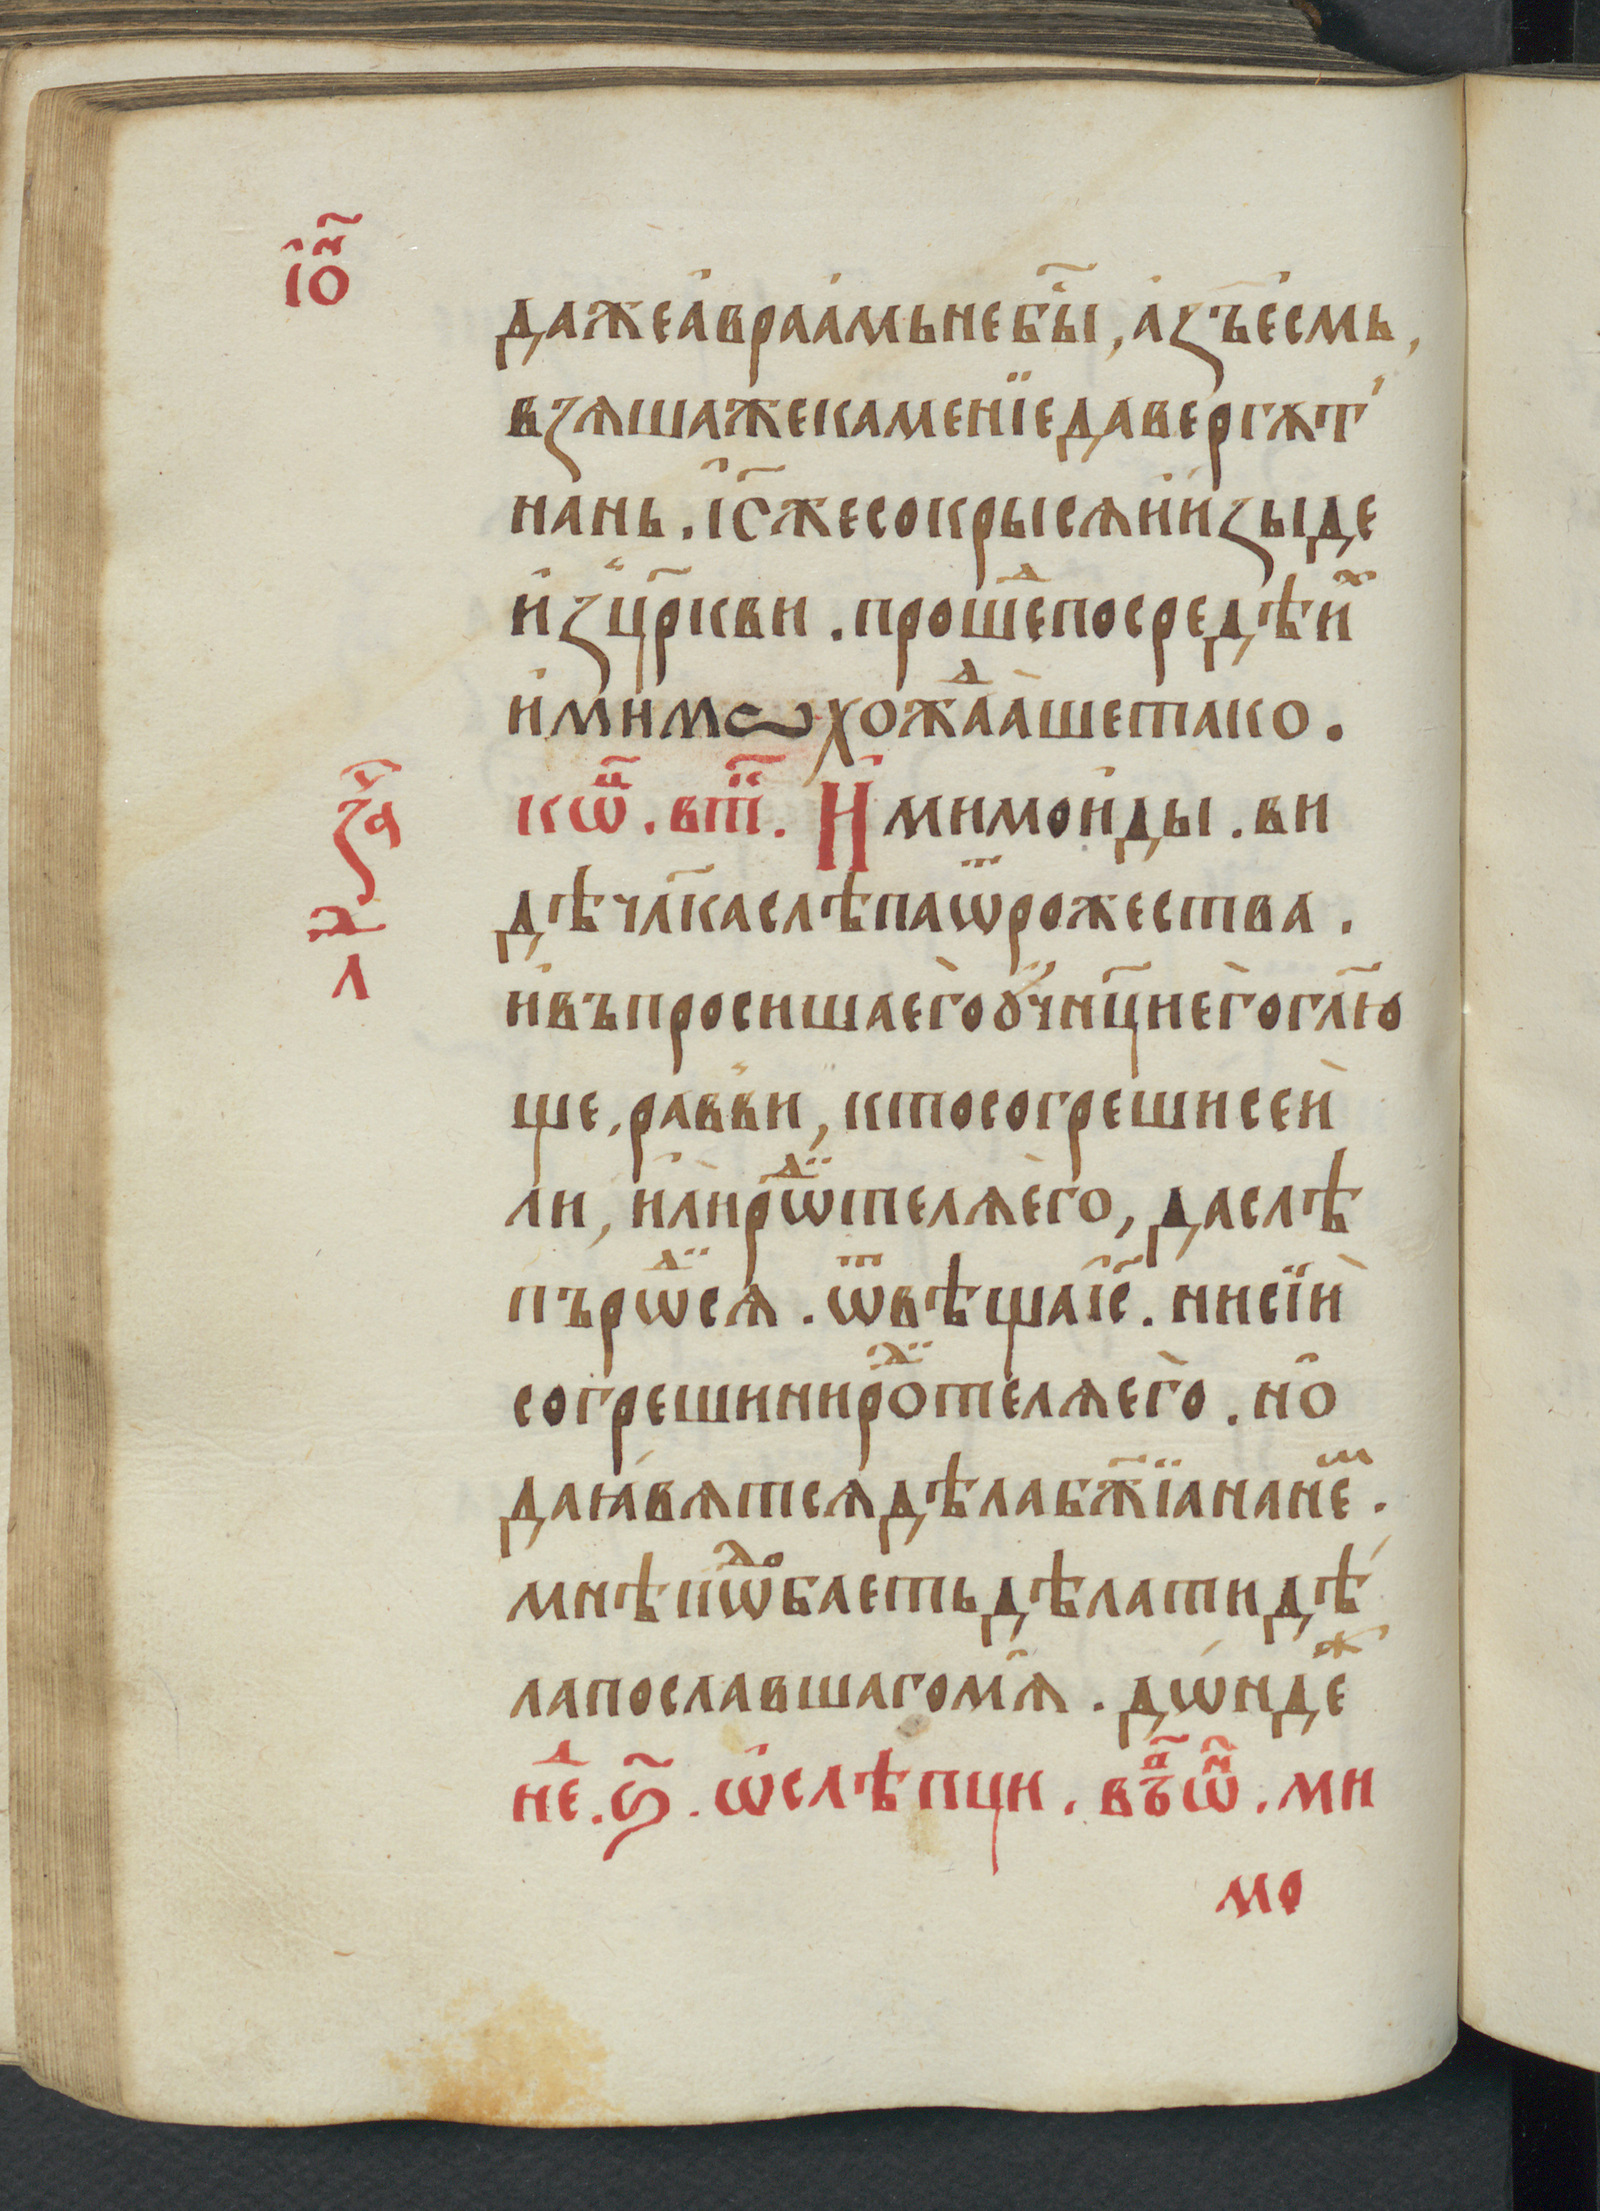 іѡ҃а
даже а҆враа́мь не бы́ , а҆зъ є҆смь ,
взѧша же каменїе да вергѫт
на нь . і҆с҃ же сокрысѧ и҆ и҆зыде
и҆з цр҃кви . прошеⷣ посредѣ иⷯ
и҆ мимѡ хожаⷣаше тако .
кѡⷩ҇ . втⷩ҇ . И҆ мимо и҆ды . ви
дѣ чл҃ка слѣпа ѿ рожества .
и҆ въпросиша є҆го ꙋ҆чн҃цы є҆го гл҃ю
ще . равви , кто согреши сей
ли , и҆ли рѡⷣтелѧ є҆го , да слѣ
пъ рѡⷣсѧ . ѿвѣща і҆с҃ . ни сїй
согреши ни роⷣтелѧ є҆го . но
да ꙗ҆вѧтсѧ дѣла бж҃їа на неⷨ .
мнѣ пѡⷣбаеть дѣлати дѣ
ла пославшаго мѧ . дѡндеⷤ
неⷣ . ѕ҃ . ѡ҆ слѣпци . въ ѡⷩ҇ . ми
мо
л҃